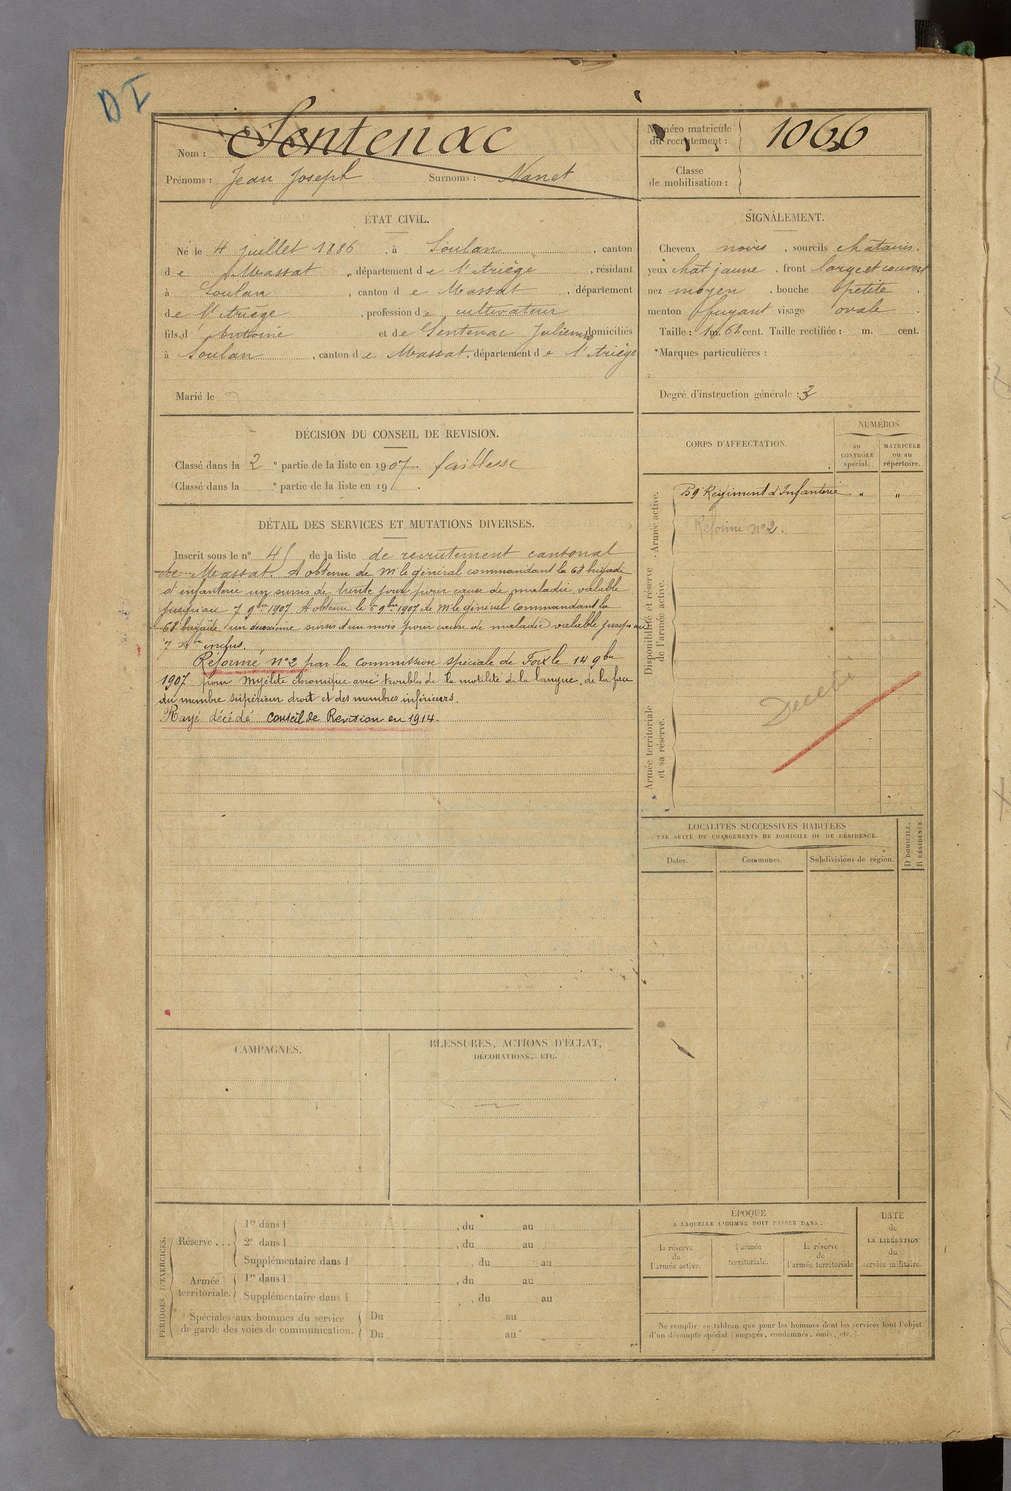 DI
Nom : Sentenac
Prénoms : Jean Joseph Surnoms : Nanet
Numéro matricule du recrutement : 1066
Classe de mobilisation :
ÉTAT CIVIL.
Né le 4 juillet 1886, à Soulan, canton
de Massat, département de l'Ariège, résidant
à Soulan, canton de Massat, département
de l'Ariège, profession de cultivateur
fils d' Antoine et de Sentenac Julienne domiciliés
à Soulan, canton de Massat, département de l'Ariège
Marié le
SIGNALEMENT.
Cheveux noirs, sourcils châtains.
yeux chat jaune, front large et couvert
nez moyen, bouche petite
menton fuyant visage ovale.
Taille : 1m. 61 cent. Taille rectifiée : m. cent.
Marques particulières :
Degré d'instruction générale : 3
DÉCISION DU CONSEIL DE REVISION.
Classé dans la 2e partie de la liste en 1907. faiblesse
Classé dans la e partie de la liste en 19 .
DÉTAIL DES SERVICES ET MUTATIONS DIVERSES.
Inscrit sous le n° 45 de la liste de recrutement cantonal
de Massat. A obtenu de Mr le général commandant la 68 brigade
d'infanterie un sursis de trente jours pour cause de maladie valable
jusqu'au 7 9bre 1907. A obtenu le 5 9bre 1907 de Mr le général commandant la
68 brigade un deuxième sursis d'un mois pour cause de maladie valable jusqu'au
7 Xbre inclus.
Réformé n°2 par la commission spéciale de Foix le 14 9bre
1907 pour myélite chronique avec troubles de la motilité de la langue, de la face
du membre supérieur droit et des membres inférieurs.
Rayé décédé Conseil de Revision en 1914.
CORPS D'AFFECTATION.
NUMÉROS
au CONTRÔLE spécial.
MATRICULE ou au répertoire.
Armée active.
59e Régiment d'Infanterie " "
Réforme n°2.
Disponibilité et réserve de l'armée active.
Armée territoriale et sa réserve.
Décédé
LOCALITÉS SUCCESSIVES HABITÉES
PAR SUITE DE CHANGEMENTS DE DOMICILE OU DE RÉSIDENCE.
Dates. Communes. Subdivisions de région. D DOMICILE. R RÉSIDENCE.
CAMPAGNES.
BLESSURES, ACTIONS D'ÉCLAT,
DÉCORATIONS, ETC.
PÉRIODES D'EXERCICES.
Réserve ... 1re dans l , du au
2e dans l , du au
Supplémentaire dans l , du au
Armée territoriale. 1re dans l , du au
Supplémentaire dans l , du au
Spéciales aux hommes du service de garde des voies de communication. Du au
Du au
ÉPOQUE
A LAQUELLE L'HOMME DOIT PASSER DANS :
la réserve de l'armée active.
l'armée territoriale.
la réserve de l'armée territoriale
DATE
de
LA LIBÉRATION
du
service militaire.
Ne remplir ce tableau que pour les hommes dont les services font l'objet
d'un décompte spécial (engagés, condamnés, omis, etc.).